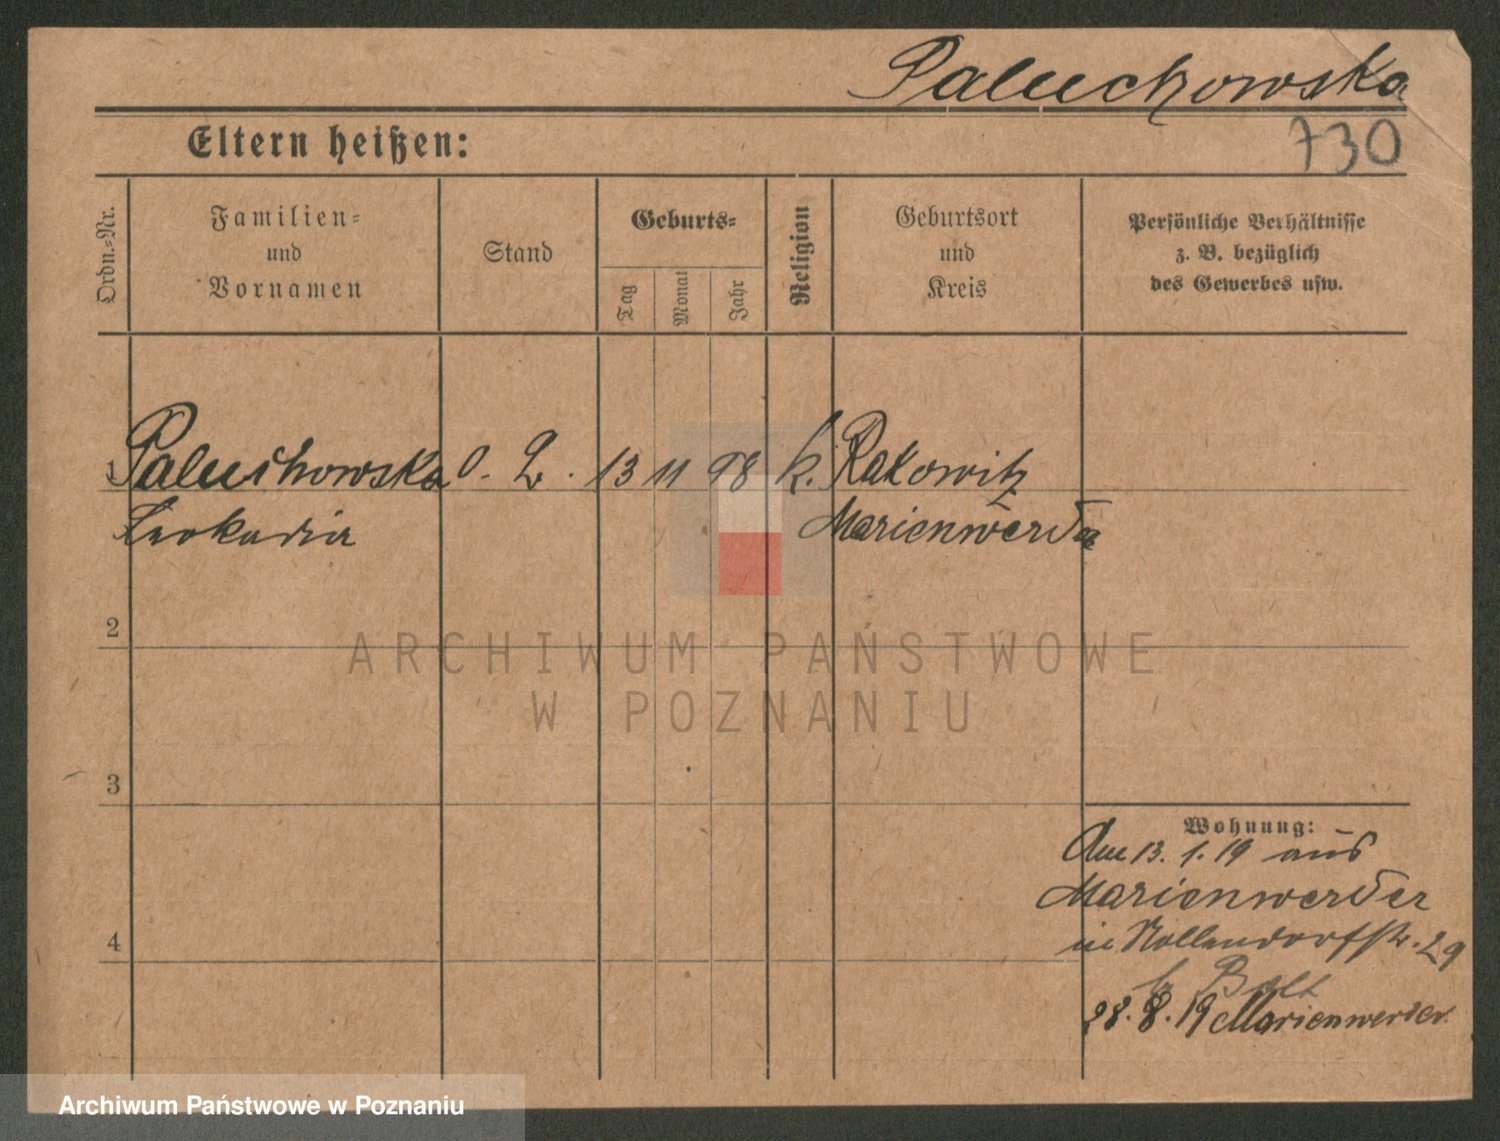 Paluchowska
730
Eltern heißen:
Ordn.=Nr.
Familien=
und
Vornamen
Stand
Geburts=
Tag
Monat
Jahr
Religion
Geburtsort
und
Kreis
Persönliche Verhältnisse
z. B. bezüglich
des Gewerbes usw.
1 Paluchowska 13 11 98 k. Rakowitz
Leokadia Marienwerder
2
ARCHIWUM PAŃSTWOWE
W POZNANIU
3
Wohnung:
Am 13. 1. 19 aus
Marienwerder
in Nollendorfstr. 29
4
b/ Belt
28. 8. 19 Marienwerder
Archiwum Państwowe w Poznaniu